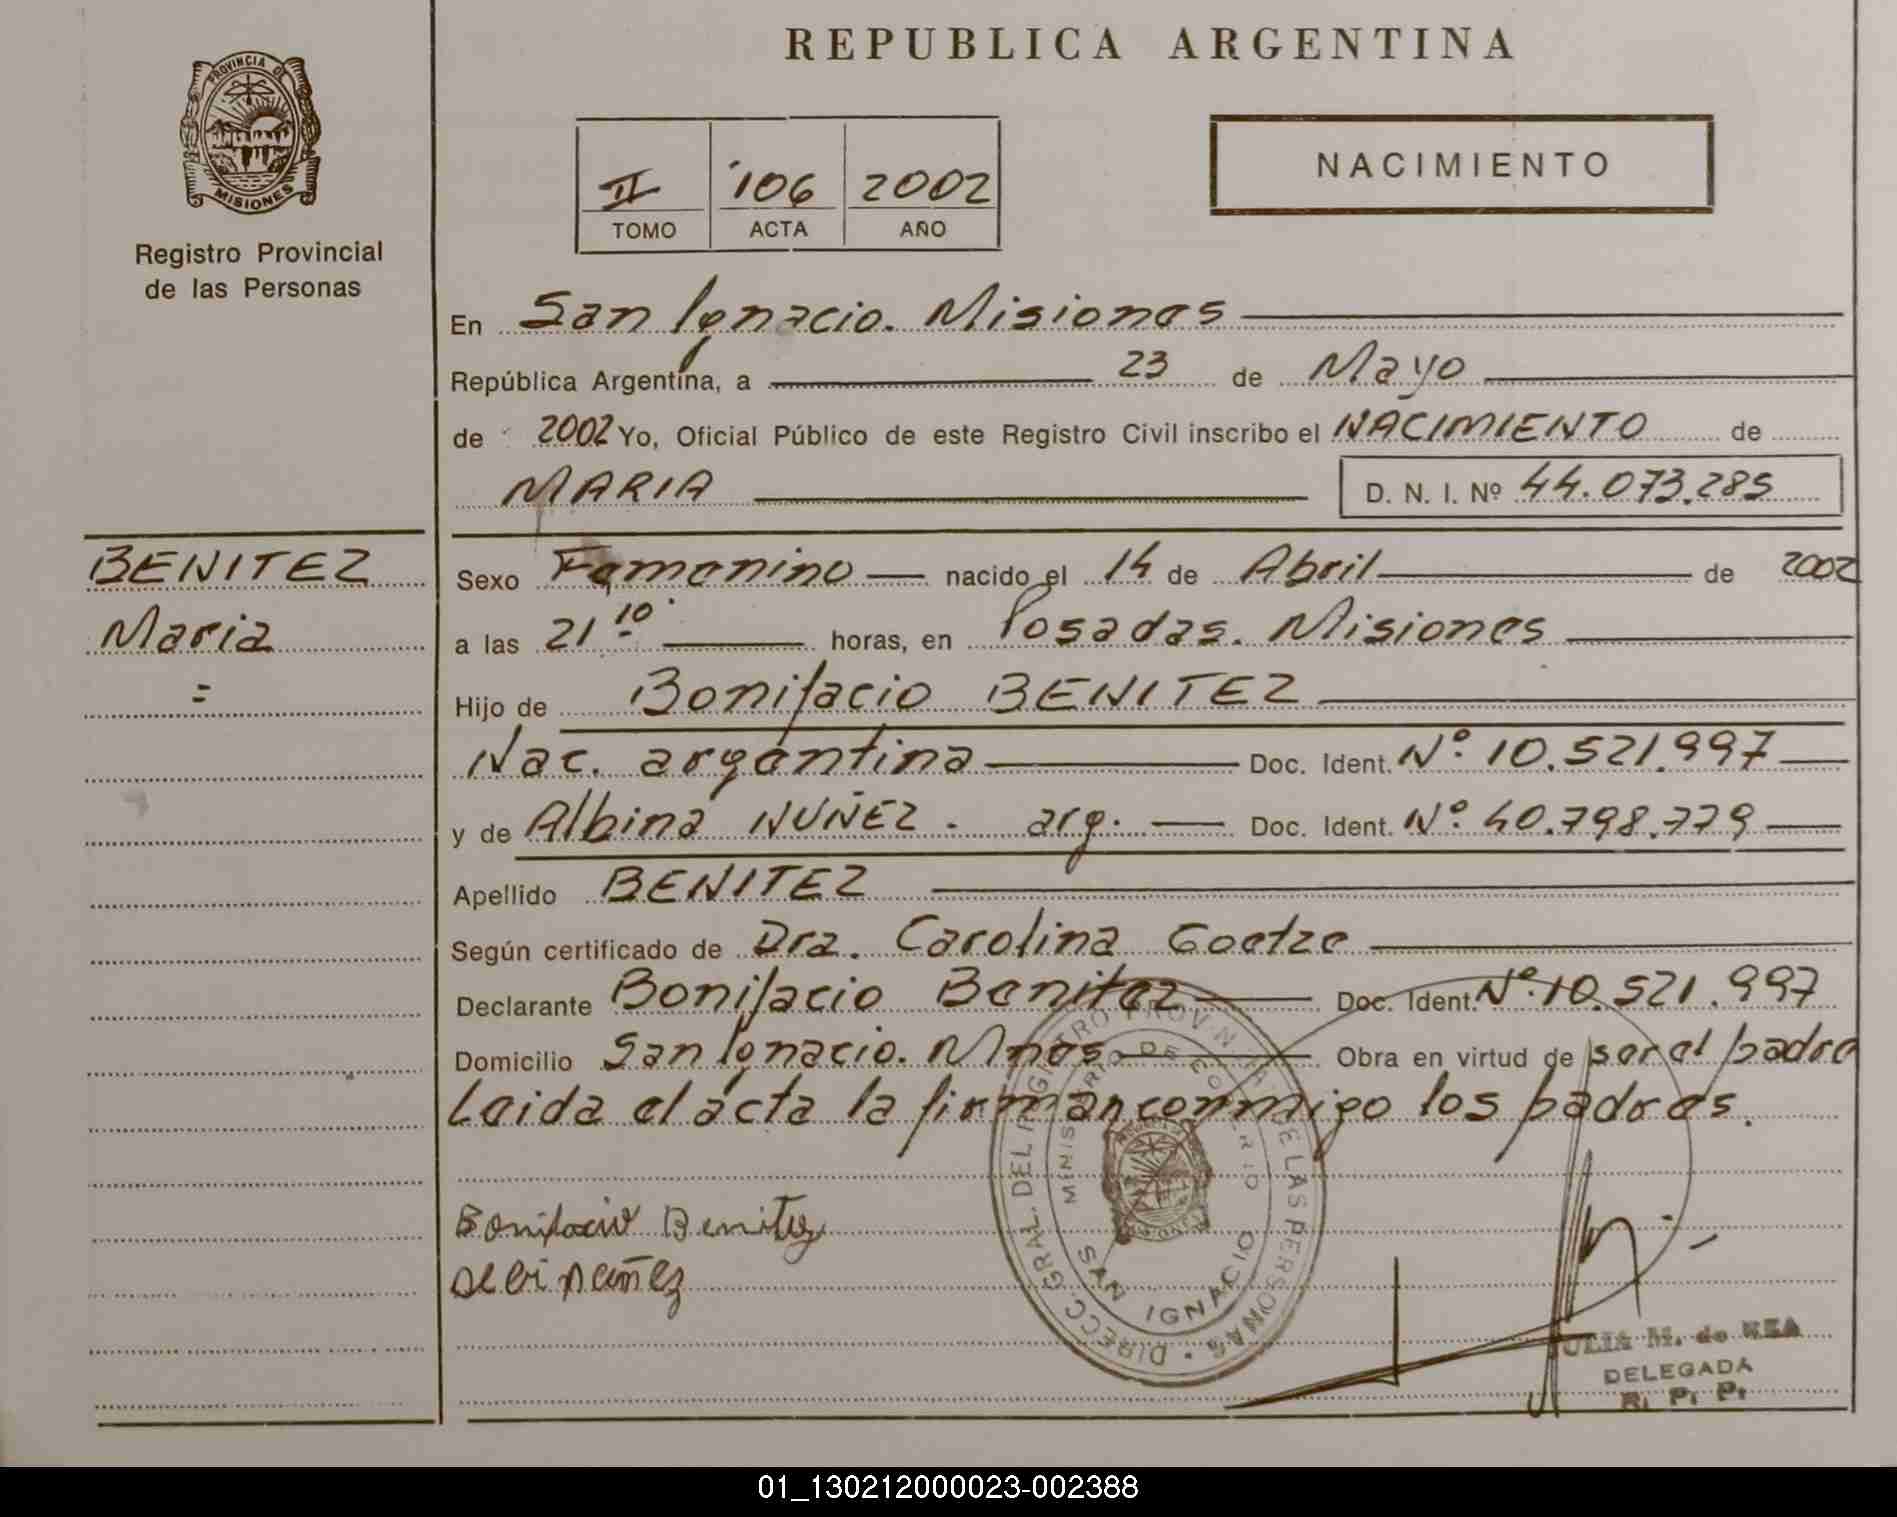 REPUBLICA ARGENTINA
PROVINCIA DE
MISIONES
Registro Provincial
de las Personas
II 106 2002
TOMO ACTA AÑO
NACIMIENTO
En San Ignacio. Misiones
República Argentina, a 23 de Mayo
de 2002 Yo, Oficial Público de este Registro Civil inscribo el NACIMIENTO de
MARIA D. N. I. Nº 44.073.285
BENITEZ
Maria
=
Sexo Femenino nacido el 14 de Abril de 2002
a las 21 10 horas, en Posadas. Misiones
Hijo de Bonifacio BENITEZ
Nac. argentina Doc. Ident. Nº 10.521.997
y de Albina NUÑEZ. arg. Doc. Ident. Nº 40.798.779
Apellido BENITEZ
Según certificado de Dra. Carolina Goetze
Declarante Bonifacio Benitez Doc. Ident. Nº 10.521.997
Domicilio San Ignacio. Mnes Obra en virtud de ser el padre
Leida el acta la firman conmigo los padres.
Bonifacio Benitez
DIRECC. GRAL. DEL REGISTRO PROVINCIAL DE LAS PERSONAS
MINISTERIO DE GOBIERNO
SAN IGNACIO
M. de
DELEGADA
R. P. P.
01_130212000023-002388